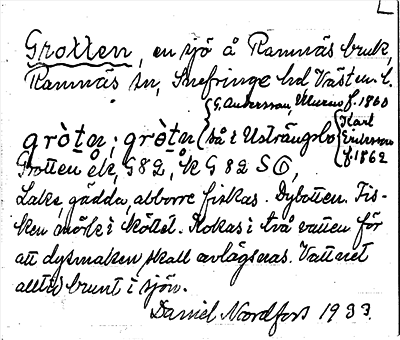 L
Grotten, en sjö å Ramnäs bruk,
Ramnäs sn, Snefringe hd, Västm. l.
G. Andersson, Murens f. 1860
gròtn; gròtn så i Uströngsbo Karl
Eriksson
f. 1862
Grotten ek, G 82, åk G 82 SO,
Lake, gädda, abborre fiskas. Dybotten. Fis-
ken mörk i köttet. Kokas i två vatten för
att dysmaken skall avlägsnas. Vattnet
alltid brunt i sjön.
Daniel Nordfors 1933.